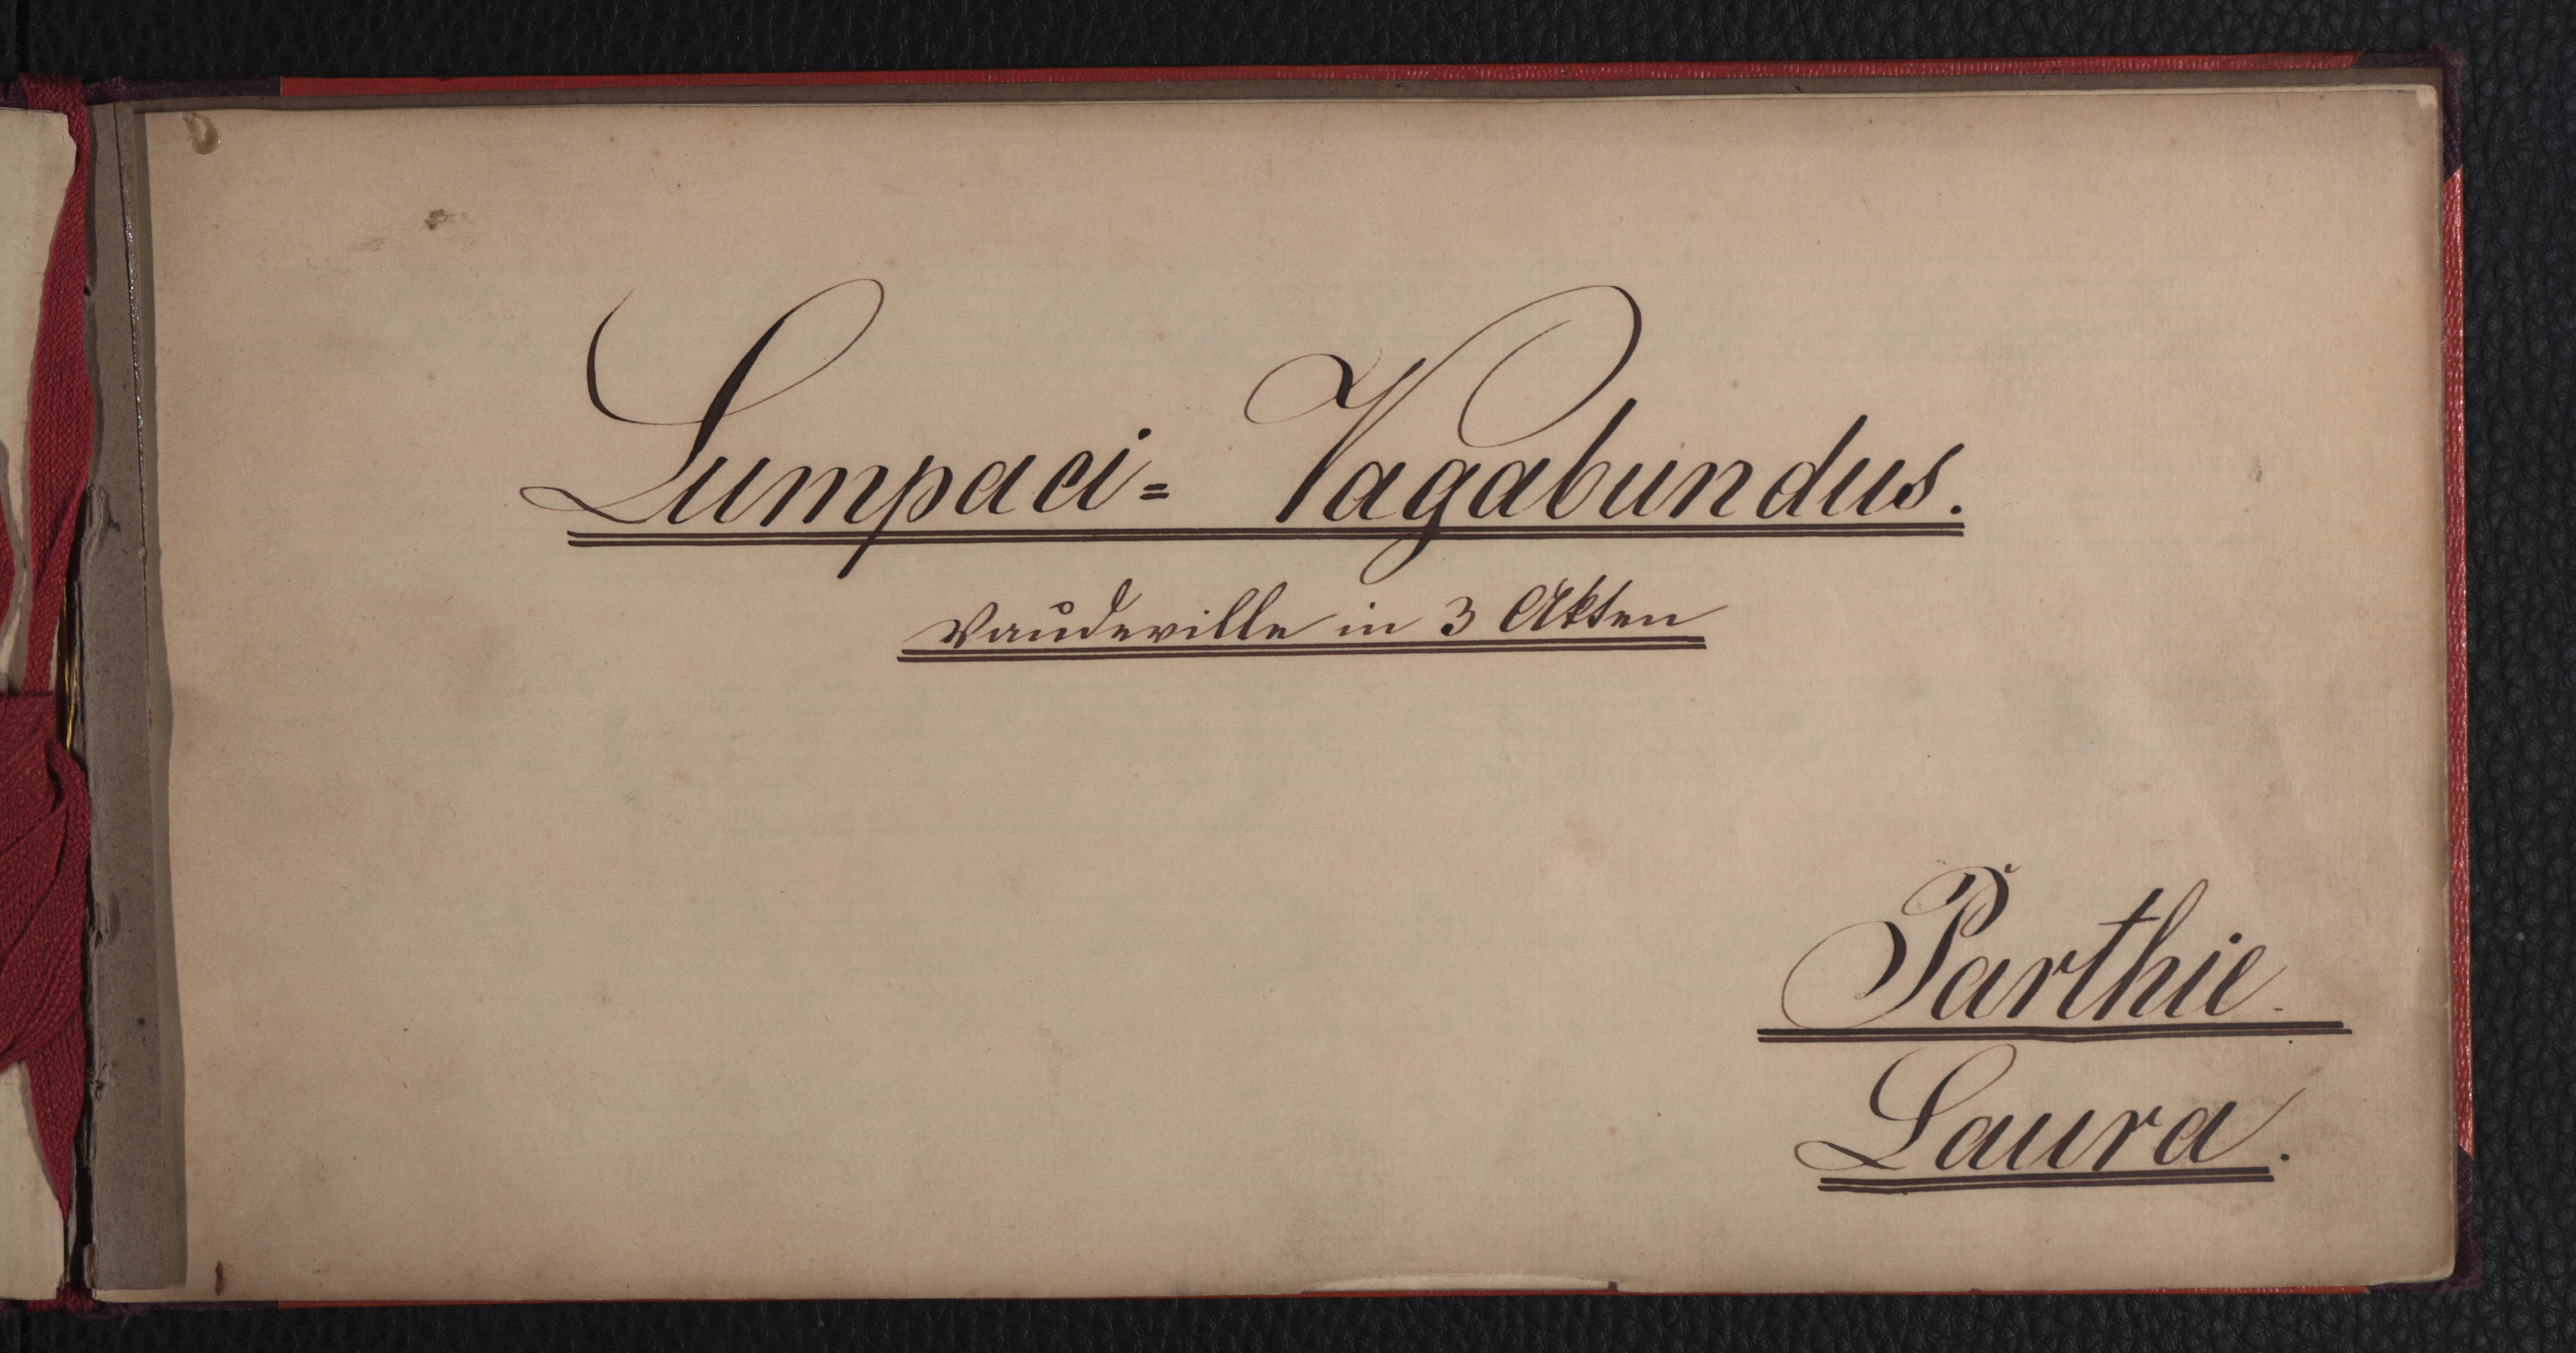 Lumpaci= Vagabundus.
Vaudeville in 3 Akten
Parthie.
Laura.